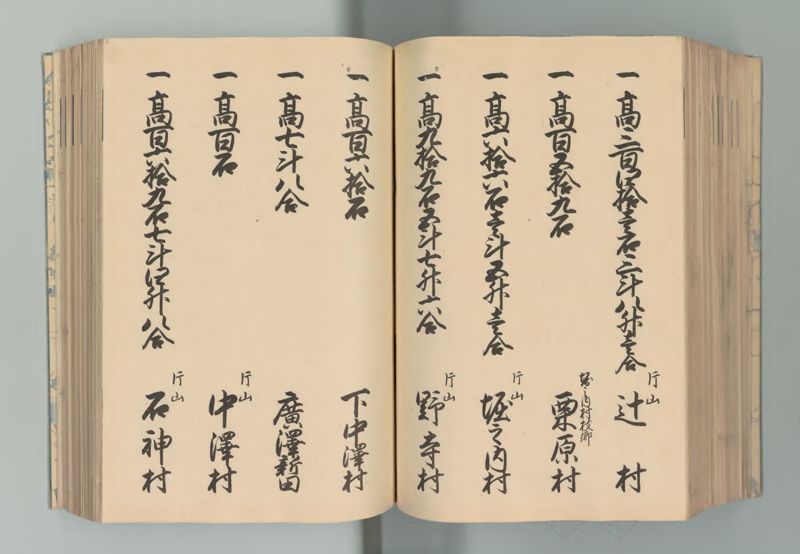 一 高三百四拾壱石三斗八升壱合 片山 辻村
一 高百五拾九石 堀之内村枝郷 栗原村
一 高六拾六石壱斗五升壱合 片山 堀之内村
一 高九拾九石五斗七升六合 片山 野寺村
一 高百六拾石 下中澤村
一 高七斗八合 廣澤新田
一 高百石 片山 中澤村
一 高百六拾九石七斗四升八合 片山 石神村